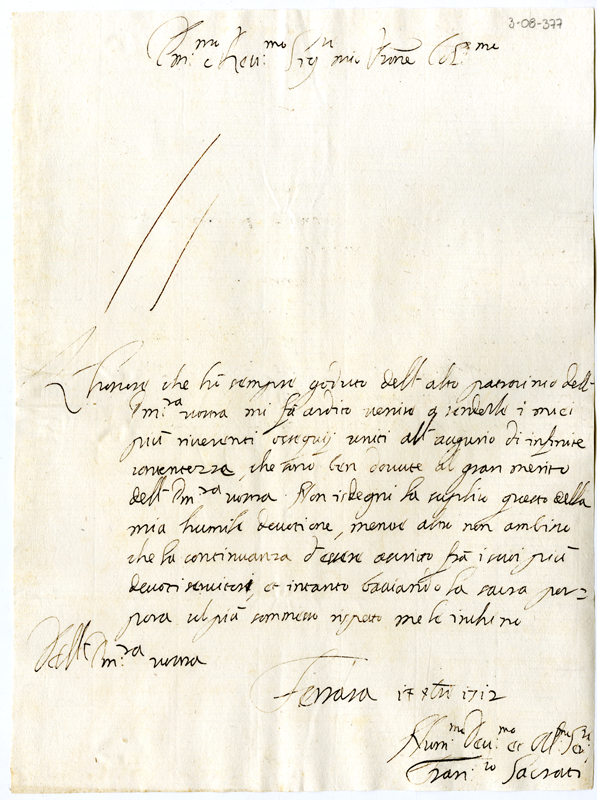 3-08-377
Em.mo e Reu.mo Sig.r mio Prone Col.mo
L'honore che hò sempre goduto dell'alto patrocinio dell'
Em.za vostra mi fà ardito venire a renderle i miei
più riuerenti ossequij uniti all'augurio di infinite
contentezze, che sono ben douute al gran merito
dell'Em.za vostra. Non isdegni la supplico questo della
mia humile deuotione, mentre altro non ambisco
che la continuanza d'essere ascritto frà i suoi più
deuoti seruitori, et intanto bacciando la sacra por=
pora col più sommesso rispetto me le inchino
Dell'Em.za vostra
Ferrara 17 Xbre 1712
Hum.mo Deu.mo et Obl.mo Ser.re
Fran.co Sacrati